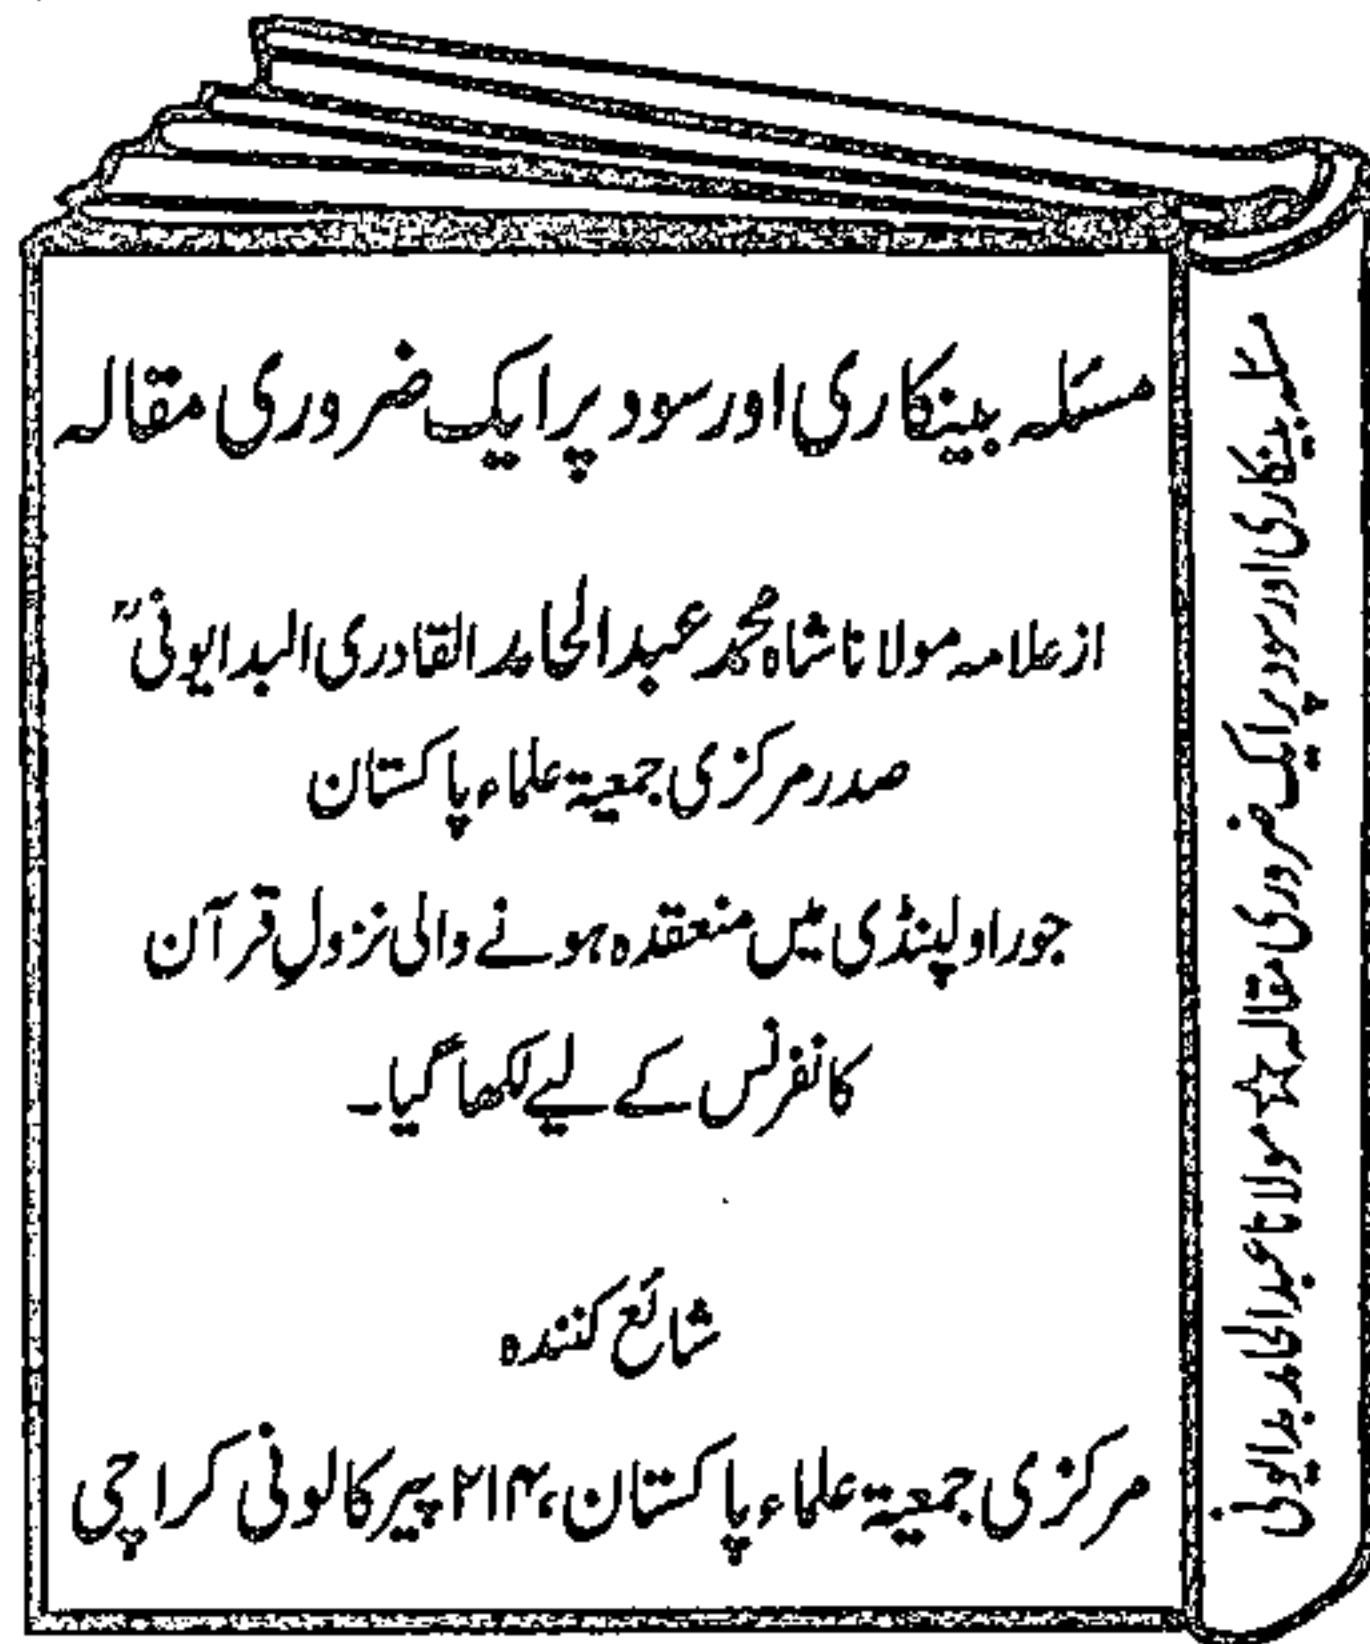 مسئلہ بینکاری اور سود پر ایک ضروری مقالہ
از علامہ مولانا شاہ محمد عبدالحامد القادری البدایونیؒ
صدر مرکزی جمعیۃ علماء پاکستان
جو راولپنڈی میں منعقدہ ہونے والی نزولِ قرآن
کانفرنس کے لیے لکھا گیا۔
شائع کنندہ
مرکزی جمعیۃ علماء پاکستان، ۲۱۴ پیر کالونی کراچی
مسئلہ بینکاری اور سود پر ایک ضروری مقالہ ☆ مولانا عبدالحامد بدایونی